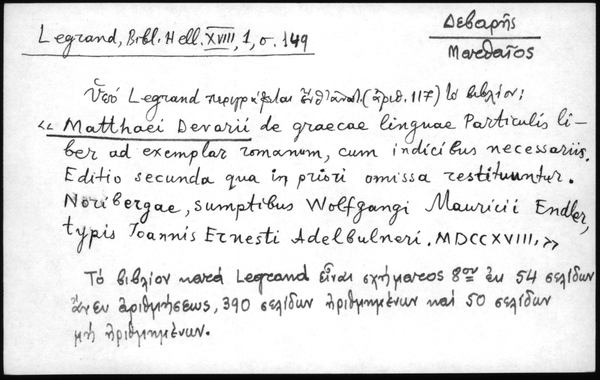 Legrand, Bibl. Hell. XVIII, 1, σ. 149
Δεβαρῆς
Ματθαῖος
Ὑπό Legrand περιγράφεται ἐνταῦθα (ἀριθ. 117) τὸ βιβλίον:
« Matthaei Devarii de graecae linguae Particulis li-
ber ad exemplar romanum, cum indicibus necessariis.
Editio secunda qua in priori omissa restituuntur.
Noribergae, sumptibus Wolfgangi Mauricii Endler,
typis Ioannis Ernesti Adelbulneri. MDCCXVIII, »
Τό βιβλίον κατά Legrand εἶναι σχήματος 8ον ἐκ 54 σελίδων
ἄνευ ἀριθμήσεως, 390 σελίδων ἠριθμημένων καί 50 σελίδων
μή ἠριθμημένων.